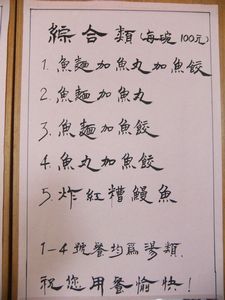 綜合類(每碗100元)
1.魚麵加魚丸加魚餃
2.魚麵加魚丸
3.魚麵加魚餃
4.魚丸加魚餃
5.炸紅糟鰻魚
1-4號餐均爲湯類.
祝您用餐愉快!